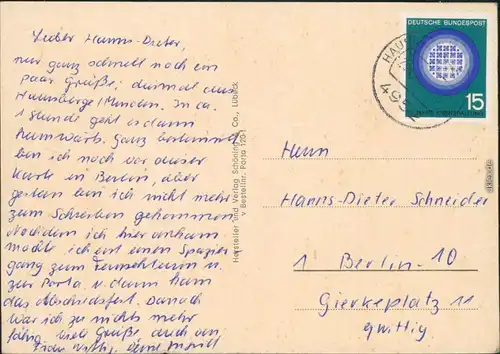 Lieber Hanns-Dieter,
nur ganz schnell noch ein
paar Grüße, diesmal aus
Hausberge/Minden. In ca.
1 Stunde geht es dann
heimwärts. Ganz bestimmt
bin ich noch vor dieser
Karte in Berlin, aber
gestern bin ich nicht mehr
zum Schreiben gekommen.
Nachdem ich hier ankam
machte ich erst einen Spazier-
gang zum Fernsehturm u.
zur Porta, u. dann kam
das Abschiedsfest. Danach
war ich zu nichts mehr
fähig. Viele Grüße auch an
Deine
Hersteller und Verlag Schöning & Co., Lübeck
Bestellnr. Porta
DEUTSCHE BUNDESPOST
15
HAUS
495
Herrn
Hanns-Dieter Schneider
1 Berlin-10
Gierkeplatz 11